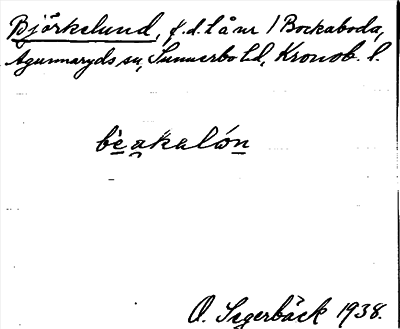 Björkelund, f.d. lå nr 1 Bockaboda,
Agunnaryds sn, Sunnerbo hd, Kronob. l.
bèakalón
O. Segerbäck 1938.